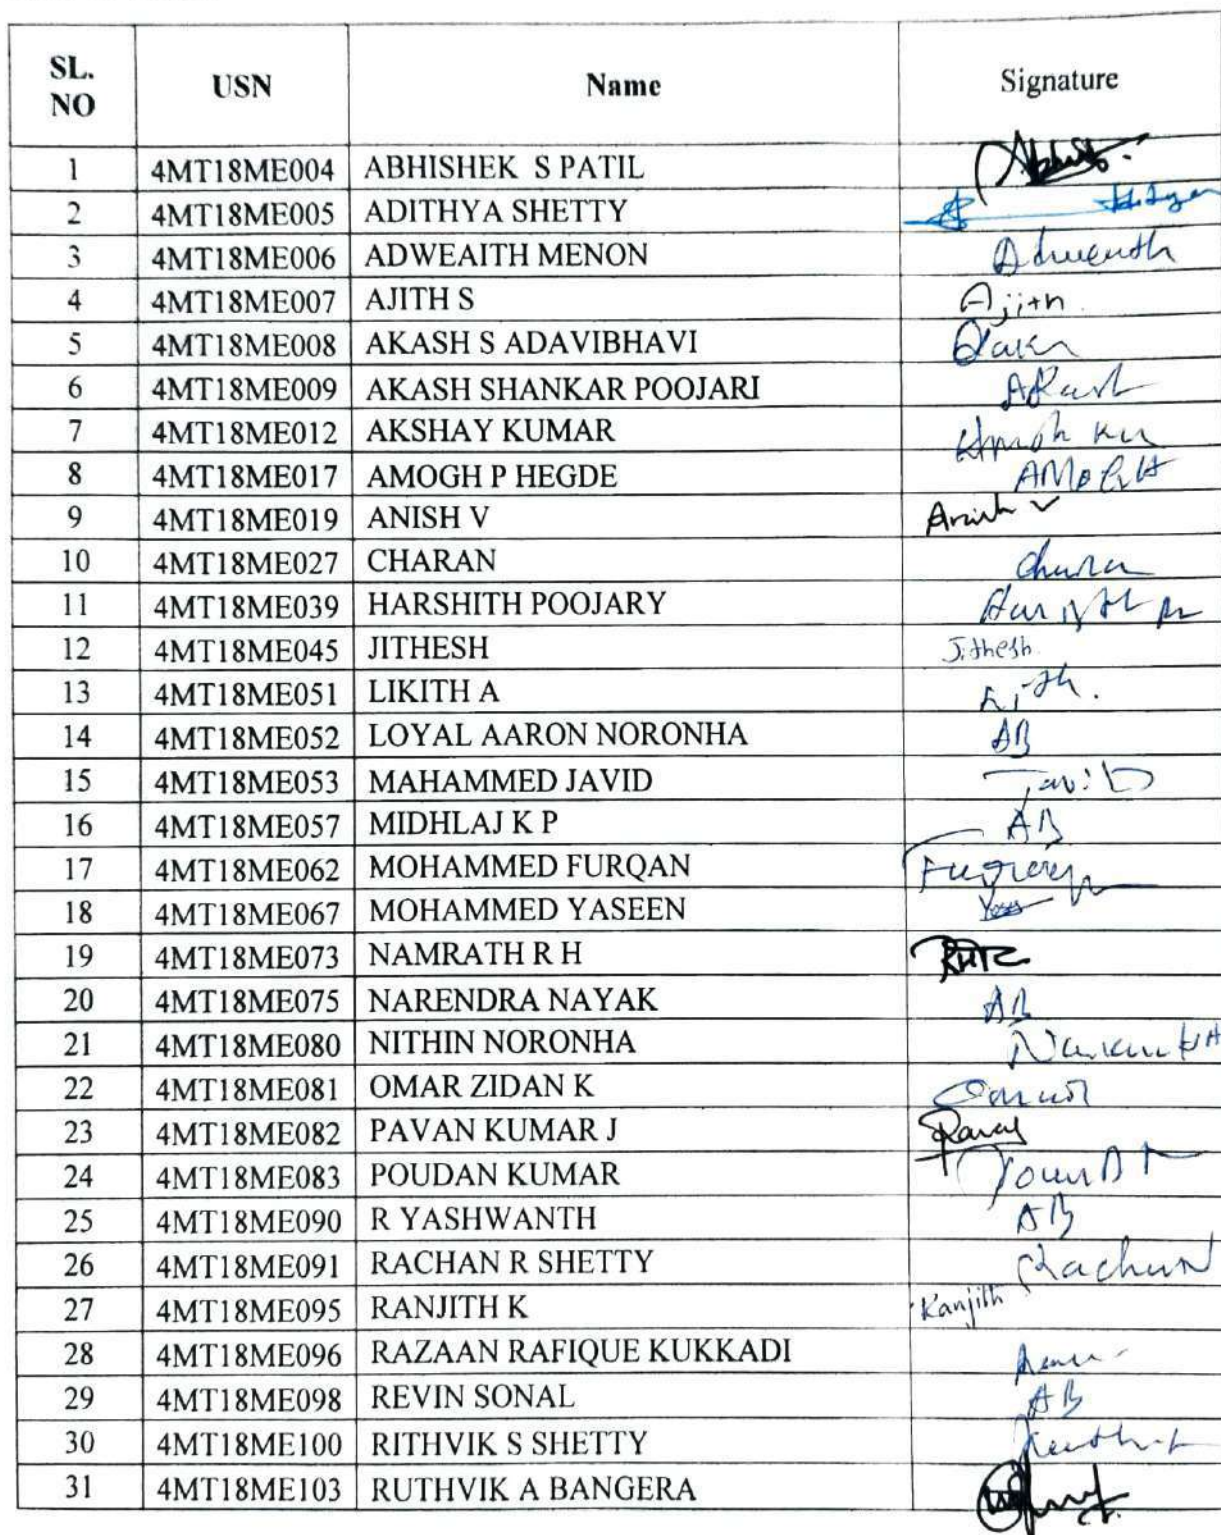 SL. NO USN Name Signature
1 4MT18ME004 ABHISHEK S PATIL
2 4MT18ME005 ADITHYA SHETTY
3 4MT18ME006 ADWEAITH MENON
4 4MT18ME007 AJITH S Ajith
5 4MT18ME008 AKASH S ADAVIBHAVI
6 4MT18ME009 AKASH SHANKAR POOJARI
7 4MT18ME012 AKSHAY KUMAR
8 4MT18ME017 AMOGH P HEGDE
9 4MT18ME019 ANISH V Anish V
10 4MT18ME027 CHARAN
11 4MT18ME039 HARSHITH POOJARY
12 4MT18ME045 JITHESH Jithesh
13 4MT18ME051 LIKITH A
14 4MT18ME052 LOYAL AARON NORONHA AB
15 4MT18ME053 MAHAMMED JAVID
16 4MT18ME057 MIDHLAJ K P AB
17 4MT18ME062 MOHAMMED FURQAN
18 4MT18ME067 MOHAMMED YASEEN
19 4MT18ME073 NAMRATH R H
20 4MT18ME075 NARENDRA NAYAK AB
21 4MT18ME080 NITHIN NORONHA
22 4MT18ME081 OMAR ZIDAN K
23 4MT18ME082 PAVAN KUMAR J
24 4MT18ME083 POUDAN KUMAR
25 4MT18ME090 R YASHWANTH AB
26 4MT18ME091 RACHAN R SHETTY
27 4MT18ME095 RANJITH K Ranjith
28 4MT18ME096 RAZAAN RAFIQUE KUKKADI
29 4MT18ME098 REVIN SONAL AB
30 4MT18ME100 RITHVIK S SHETTY
31 4MT18ME103 RUTHVIK A BANGERA